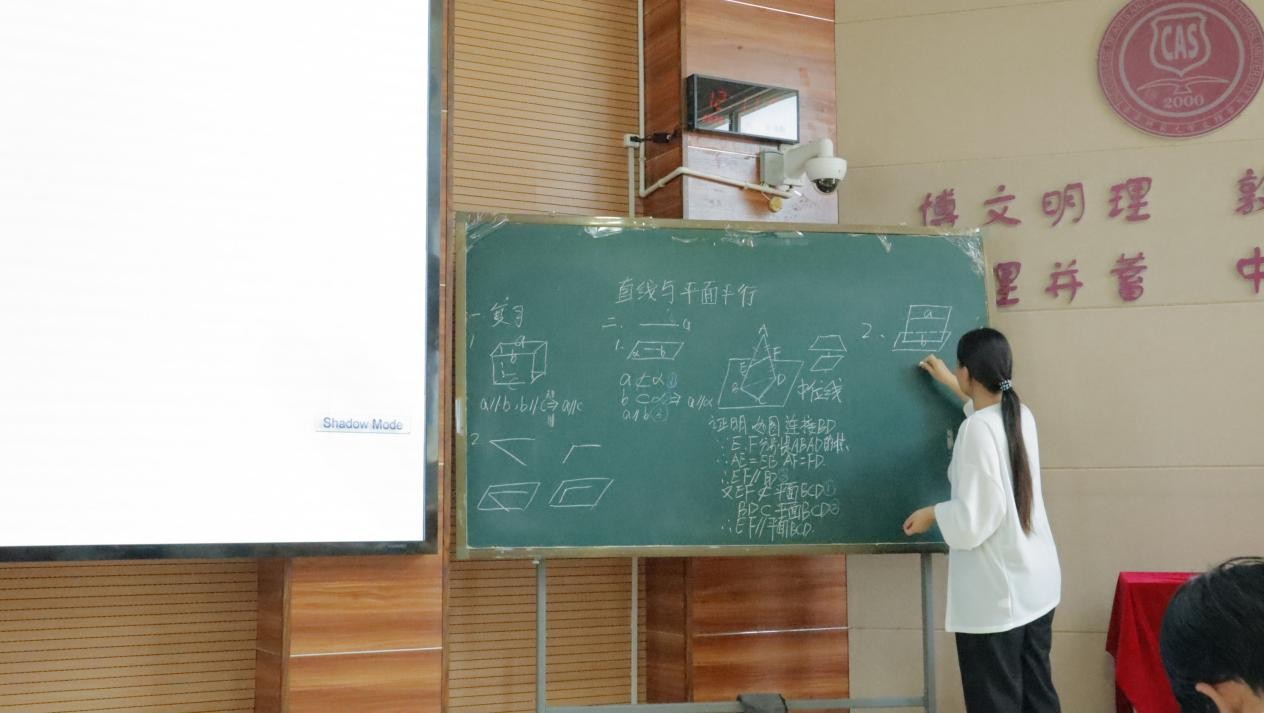 Shadow Mode
CAS
2000
博文明理 敦
理并蓄 中
直线与平面平行
一.复习
1
a
b
c
a//b,b//c⇒a//c
2
二. a
1.
α b
a⊄α①
b⊂α②⇒a//α
a//b③
A
E F
B D
C
中位线
证明 如图连接BD
∵E.F分别是ABAD的
∴AE=EB AF=FD.
∴EF//BD
又EF⊄平面BCD①
BD⊂平面BCD②
∴EF//平面BCD.
2、
a
b